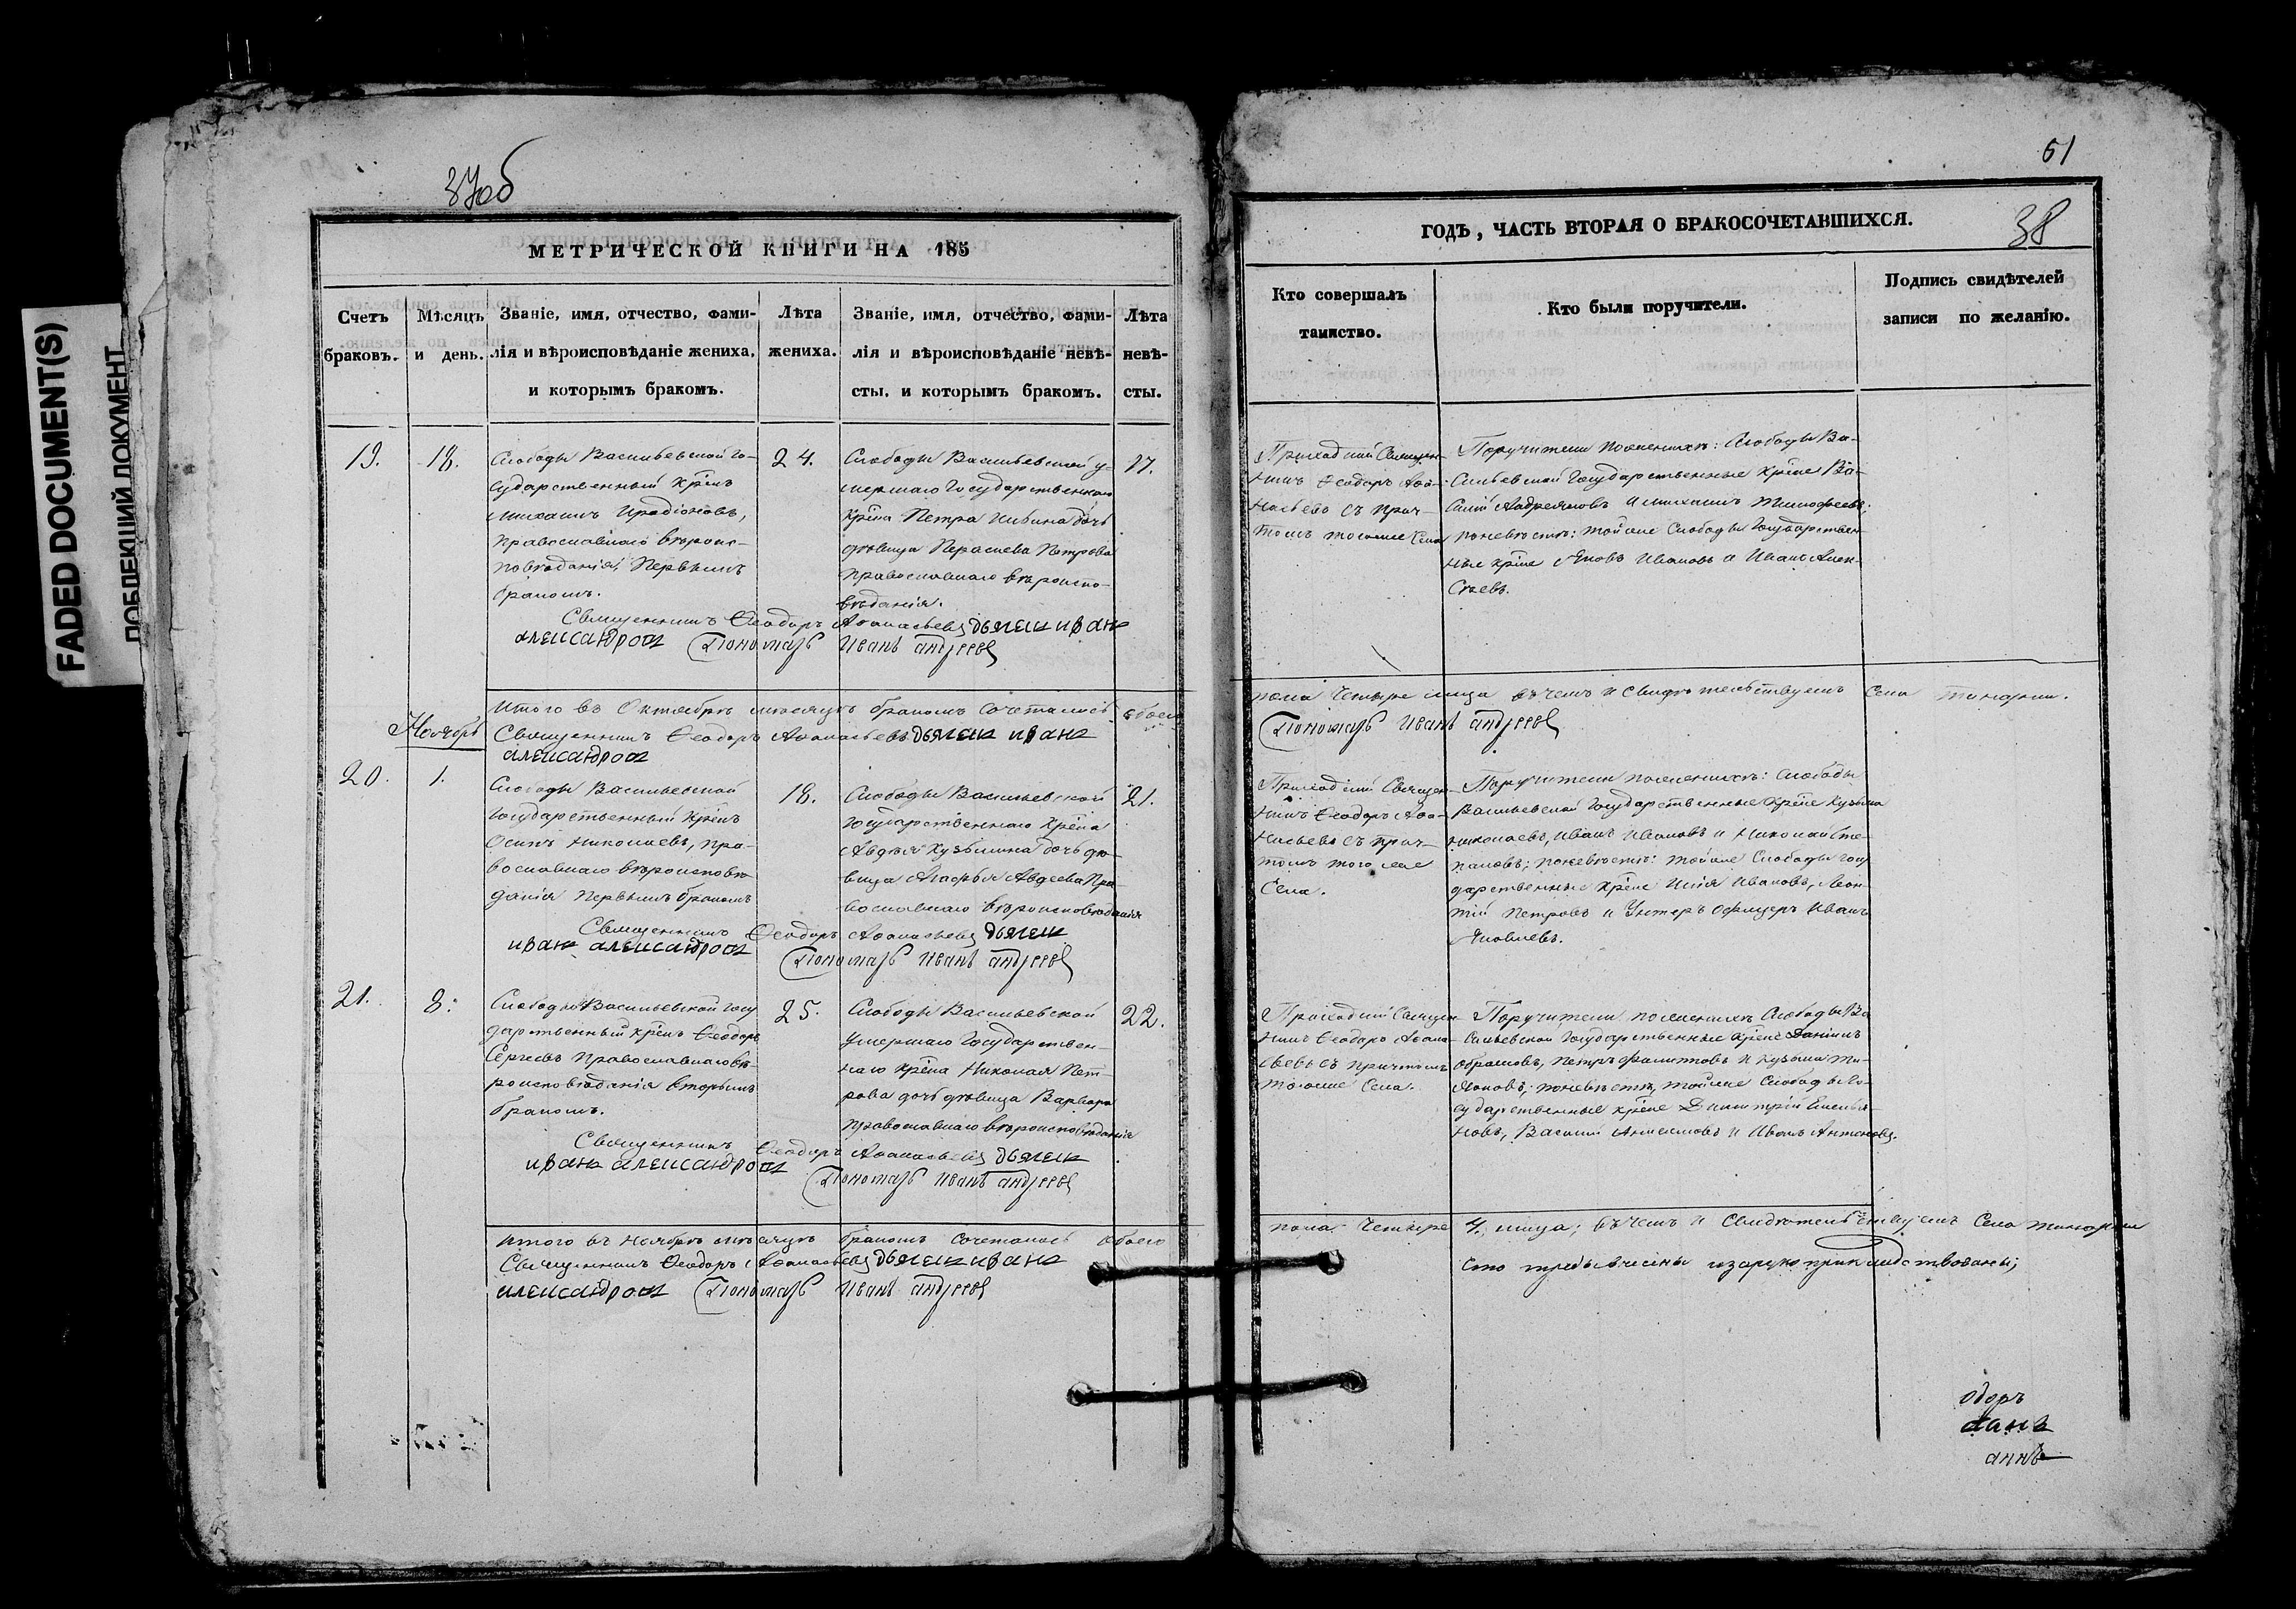 FADED DOCUMENT(S)
ПОБЛЕКШИЙ ДОКУМЕНТ
37об
МЕТРИЧЕСКОЙ КНИГИ НА 185
Счетъ
браковъ.
Мѣсяцъ
и день.
Званіе, имя, отчество, фами-
лія и вѣроисповѣданіе жениха,
и которымъ бракомъ.
Лѣта
жениха.
Званіе, имя, отчество, фами-
лія и вѣроисповѣданіе невѣ-
сты, и которымъ бракомъ.
Лѣта
невѣ-
сты.
19.
18.
Слободы Васильевской го-
сударственный Крѣнъ
Михаилъ Иродіоновъ,
православнаго вѣроис-
повѣданія, Первымъ
бракомъ.
24.
Слободы Васильевской у-
мершаго Государственнаго
Крѣна Петра Ильина дочь
дѣвица Параскева Петрова
православнаго вѣроиспо-
вѣданія.
17.
Священникъ Ѳеодоръ Аѳанасьевъ дьячекъ иванъ
александровъ Пономарь Иванъ андреевъ
Итого въ Октябрѣ мѣсяцѣ бракомъ сочеталось обоего
Ноябрь
Священникъ Ѳеодоръ Аѳанасьевъ дьячекъ иванъ
александровъ
20.
1.
Слободы Васильевской
Государственный Крѣнъ
Осипъ Николаевъ, пра-
вославнаго вѣроисповѣ-
данія Первымъ бракомъ
18.
Слободы Васильевской
Государственнаго Крѣна
Авдѣя Кузьмина дочь дѣ-
вица Агафья Авдеева Пра-
вославнаго вѣроисповѣданія
21.
Священникъ Ѳеодоръ Аѳанасьевъ дьячекъ
иванъ александровъ Пономарь Иванъ андреевъ
21.
8.
Слободы Васильевской госу
дарственный Крѣнъ Ѳеодоръ
Сергѣевъ Православнаго вѣ-
роисповѣданія вторымъ
бракомъ.
25.
Слободы Васильевской
Умершаго Государствен-
наго Крѣна Николая Пет-
рова дочь дѣвица Варвара
православнаго вѣроисповѣданія
22.
Священникъ Ѳеодоръ Аѳанасьевъ дьячекъ
иванъ александровъ Пономарь Иванъ андреевъ
Итого въ Ноябрѣ мѣсяцѣ бракомъ Сочеталось обоего
Священникъ Ѳеодоръ Аѳанасьевъ дьячекъ иванъ
александровъ Пономарь Иванъ андреевъ
61
ГОДЪ, ЧАСТЬ ВТОРАЯ О БРАКОСОЧЕТАВШИХСЯ.
38
Кто совершалъ
таинство.
Кто были поручители.
Подпись свидѣтелей
записи по желанію.
Приходскій Священ-
никъ Ѳеодоръ Аѳа-
насьевъ съ прич-
томъ тогоже Села
Поручители поженихѣ: Слободы Ва-
сильевской Государственные Крѣне Ва-
силій Андреяновъ и михаилъ Тимофеевъ;
поневѣстѣ: тойже Слободы Государствен-
ные Крѣне Яковъ Ивановъ и Иванъ Алек-
сѣевъ.
пола Четыре лица въ чемъ и свидѣтельствуемъ Села
Пономарь Иванъ андреевъ
Приходскій Священ-
никъ Ѳеодоръ Аѳа-
насьевъ съ прич-
томъ того же
Села.
Поручители поженихѣ: Слободы
Васильевской Государственные Крѣне Кузьма
Николаевъ, Иванъ Ивановъ и Николай Сте-
пановъ; поневѣстѣ: тойже Слободы госу
дарственные Крѣне Илія Ивановъ, Леон-
тій Петровъ и Унтеръ офицеръ Иванъ
Яковлевъ.
Приходскій Священ-
никъ Ѳеодоръ Аѳана-
сьевъ съ причтомъ
тогоже Села.
Поручители поженихѣ Слободы Ва
сильевской Государственные Крѣне Даніилъ
Абрамовъ, Петръ Филиповъ и Кузьма
поневѣстѣ, тойже Слободы Го-
сударственные Крѣне Димитрій Емелья-
новъ, Василій Анисимовъ и Иванъ Антоновъ.
пола Четыре 4. лица; въ чемъ и Свидѣтельствуемъ Села
одоръ